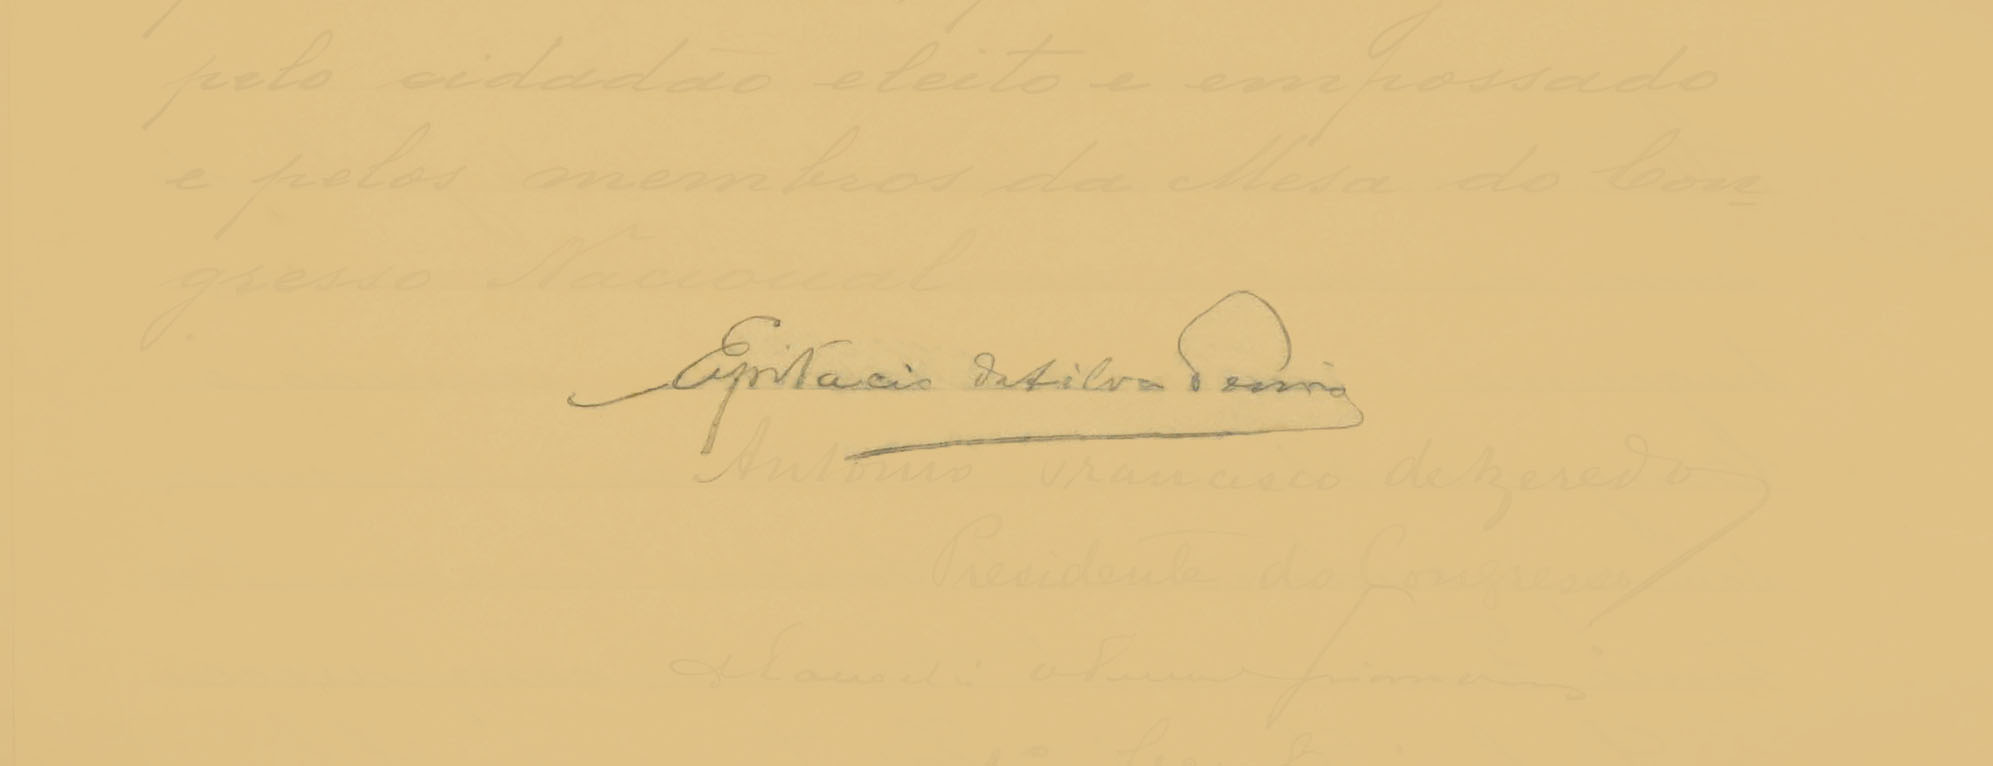 pelo cidadão eleito e empossado
e pelos membros da Mesa do Con-
gresso Nacional
Epitacio da Silva Pessôa
Antonio Francisco de Azeredo
Presidente do Congresso